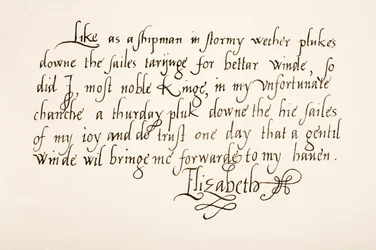 Like as a shipman in stormy wether plukes
downe the sailes tarijnge for bettar winde, so
did I, most noble Kinge, in my vnfortunate
chanche a thurday pluk downe the hie sailes
of my ioy and do trust one day that a gentil
winde wil bringe me forwarde to my hauen.
Elizabeth